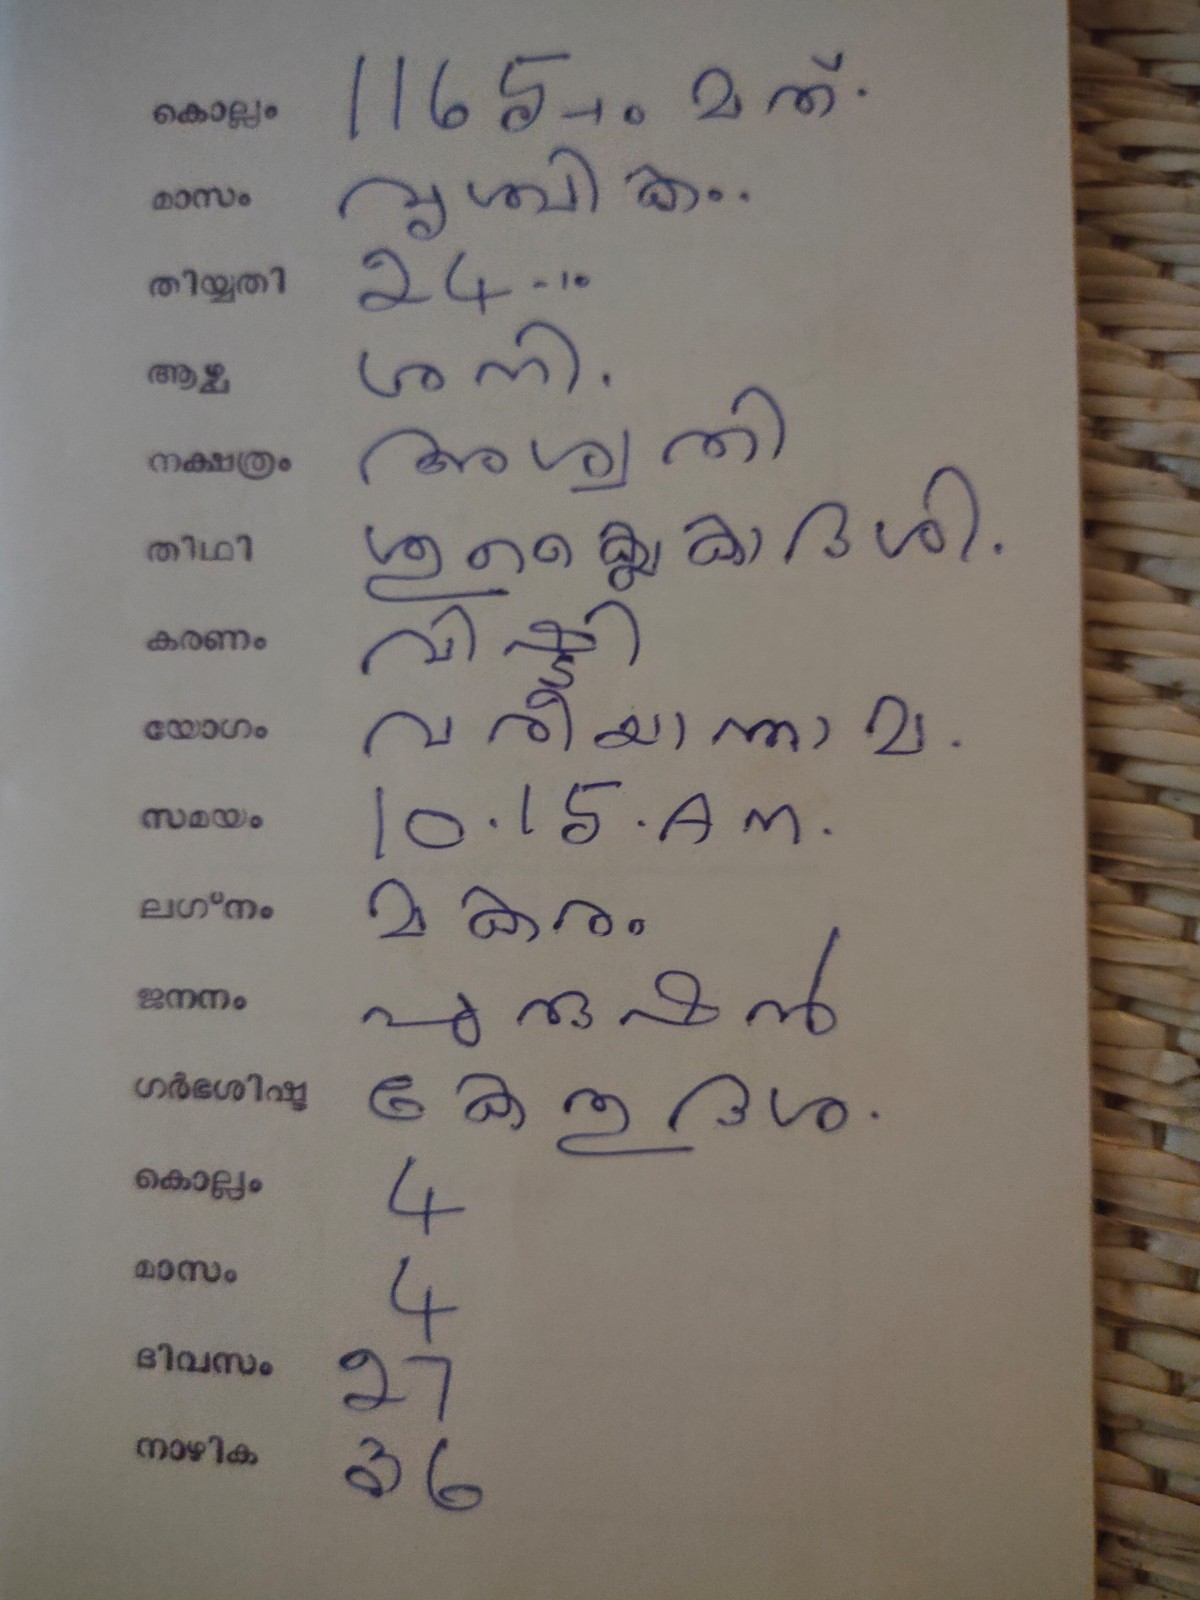 കൊല്ലം 1165-ാം മത്.
മാസം വൃശ്ചികം.
തിയ്യതി 24-ാം
ആഴ്ച ശനി.
നക്ഷത്രം അശ്വതി
തിഥി ശുക്ലൈകാദശി.
കരണം വിഷ്ടി
യോഗം വരീയാന്നാമ.
സമയം 10.15.Am.
ലഗ്നം മകരം
ജനനം പുരുഷൻ
ഗർഭശിഷ്ട കേതുദശ.
കൊല്ലം 4
മാസം 4
ദിവസം 27
നാഴിക 36